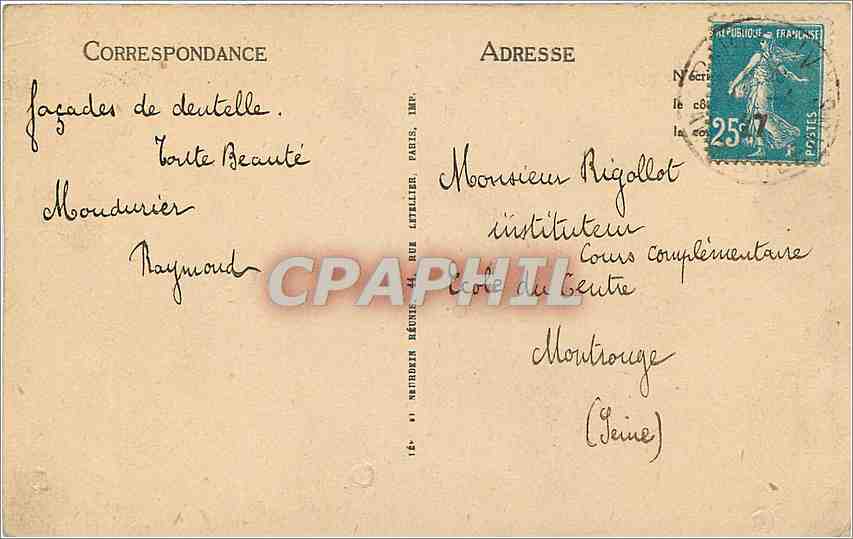 CORRESPONDANCE
ADRESSE
RÉPUBLIQUE FRANÇAISE
25c
POSTES
N'écrire
le cô
la co
façades de dentelle.
Toute Beauté
Moudurier
Raymond
Monsieur Rigollot
instituteur
Cours complémentaire
Ecole du Centre
Montrouge
(Seine)
LÉVY ET NEURDEIN RÉUNIS, 44, RUE LETELLIER, PARIS, IMP.
CPAPHIL